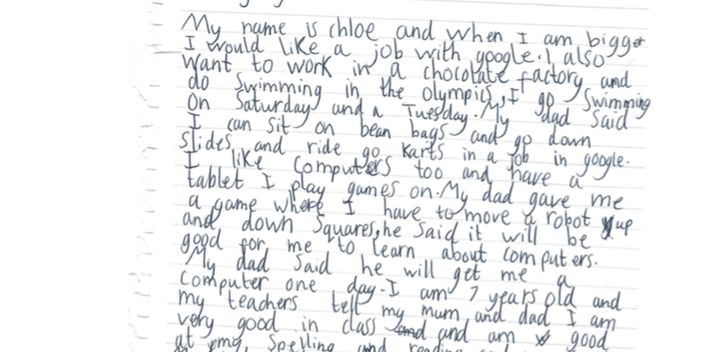 My name is chloe and when I am bigger
I would like a job with google. I also
want to work in a chocolate factory and
do swimming in the olympics, I go swimming
on Saturday and a Tuesday. My dad said
I can sit on bean bags and go down
slides and ride go karts in a job in google.
I like computers too and have a
tablet I play games on. My dad gave me
a game where I have to move a robot up
and down squares, he said it will be
good for me to learn about computers.
My dad said he will get me a
computer one day. I am 7 years old and
my teachers tell my mum and dad I am
very good in class and and am good
at my spelling and reading